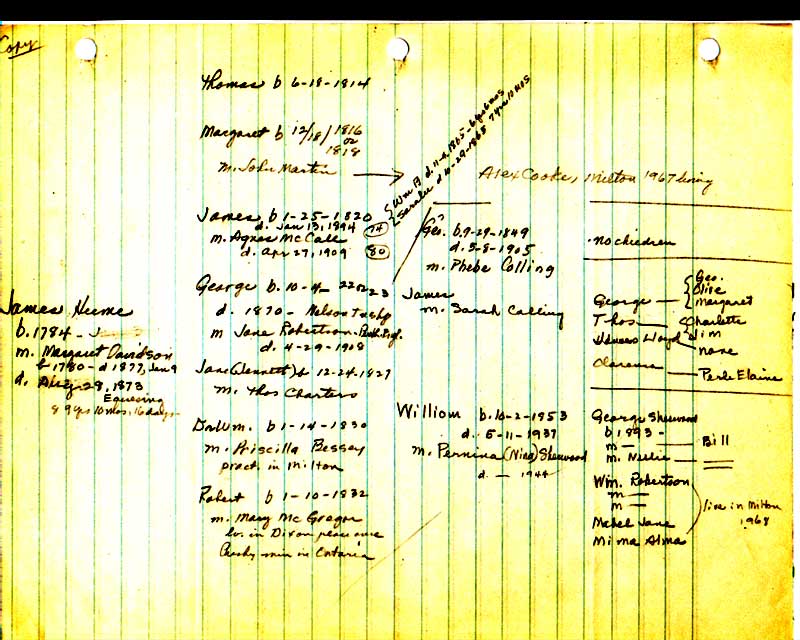 Copy
Thomas b 6-18-1814
Margaret b 12/18/1816
or
1818
m. John Martin
Wm B d. 11-4-1865-
Sarah d. 10-29-1865
Alex Cooke, Milton 1967 living
James b 1-25-1820
d. Jan 13, 1894 74
m. Agnes McCall
d. Apr 27, 1909 80
Geo. b. 9-29-1849
d. 5-8-1905
m. Phebe Colling
no children
George b. 10-4-
d. 1870 - Nelson Twshp
m Jane Robertson-
d. 4-29-1908
James
m. Sarah Colling
George — Geo.
Olive
Margaret
Thos — Charlotte
Jim
James Lloyd none
Clarence — Perle Elaine
James Hume
b. 1784 -
m. Margaret Davidson
b 1780 - d 1877, Jan 9
d. Aug 28, 1873
Equesing
89 yrs 10 mos. 16 days
Jane (Jennett) b 12-24-1827
m. Thos Charters
Dr. Wm. b 1-14-1830
m. Priscilla Bessey
pract. in Milton
Robert b 1-10-1832
m. Mary McGregor
lv. in Dixon place once
in Ontario
William b. 10-2-1853
d. 5-11-1937
m. Pernina (Nina) Sherwood
d. — 1944
George Sherwood
b 1893 -
m — Bill
m. Nellie —
Wm. Robertson
m —
m —
Mabel Jane
Mima Alma
live in Milton
1968